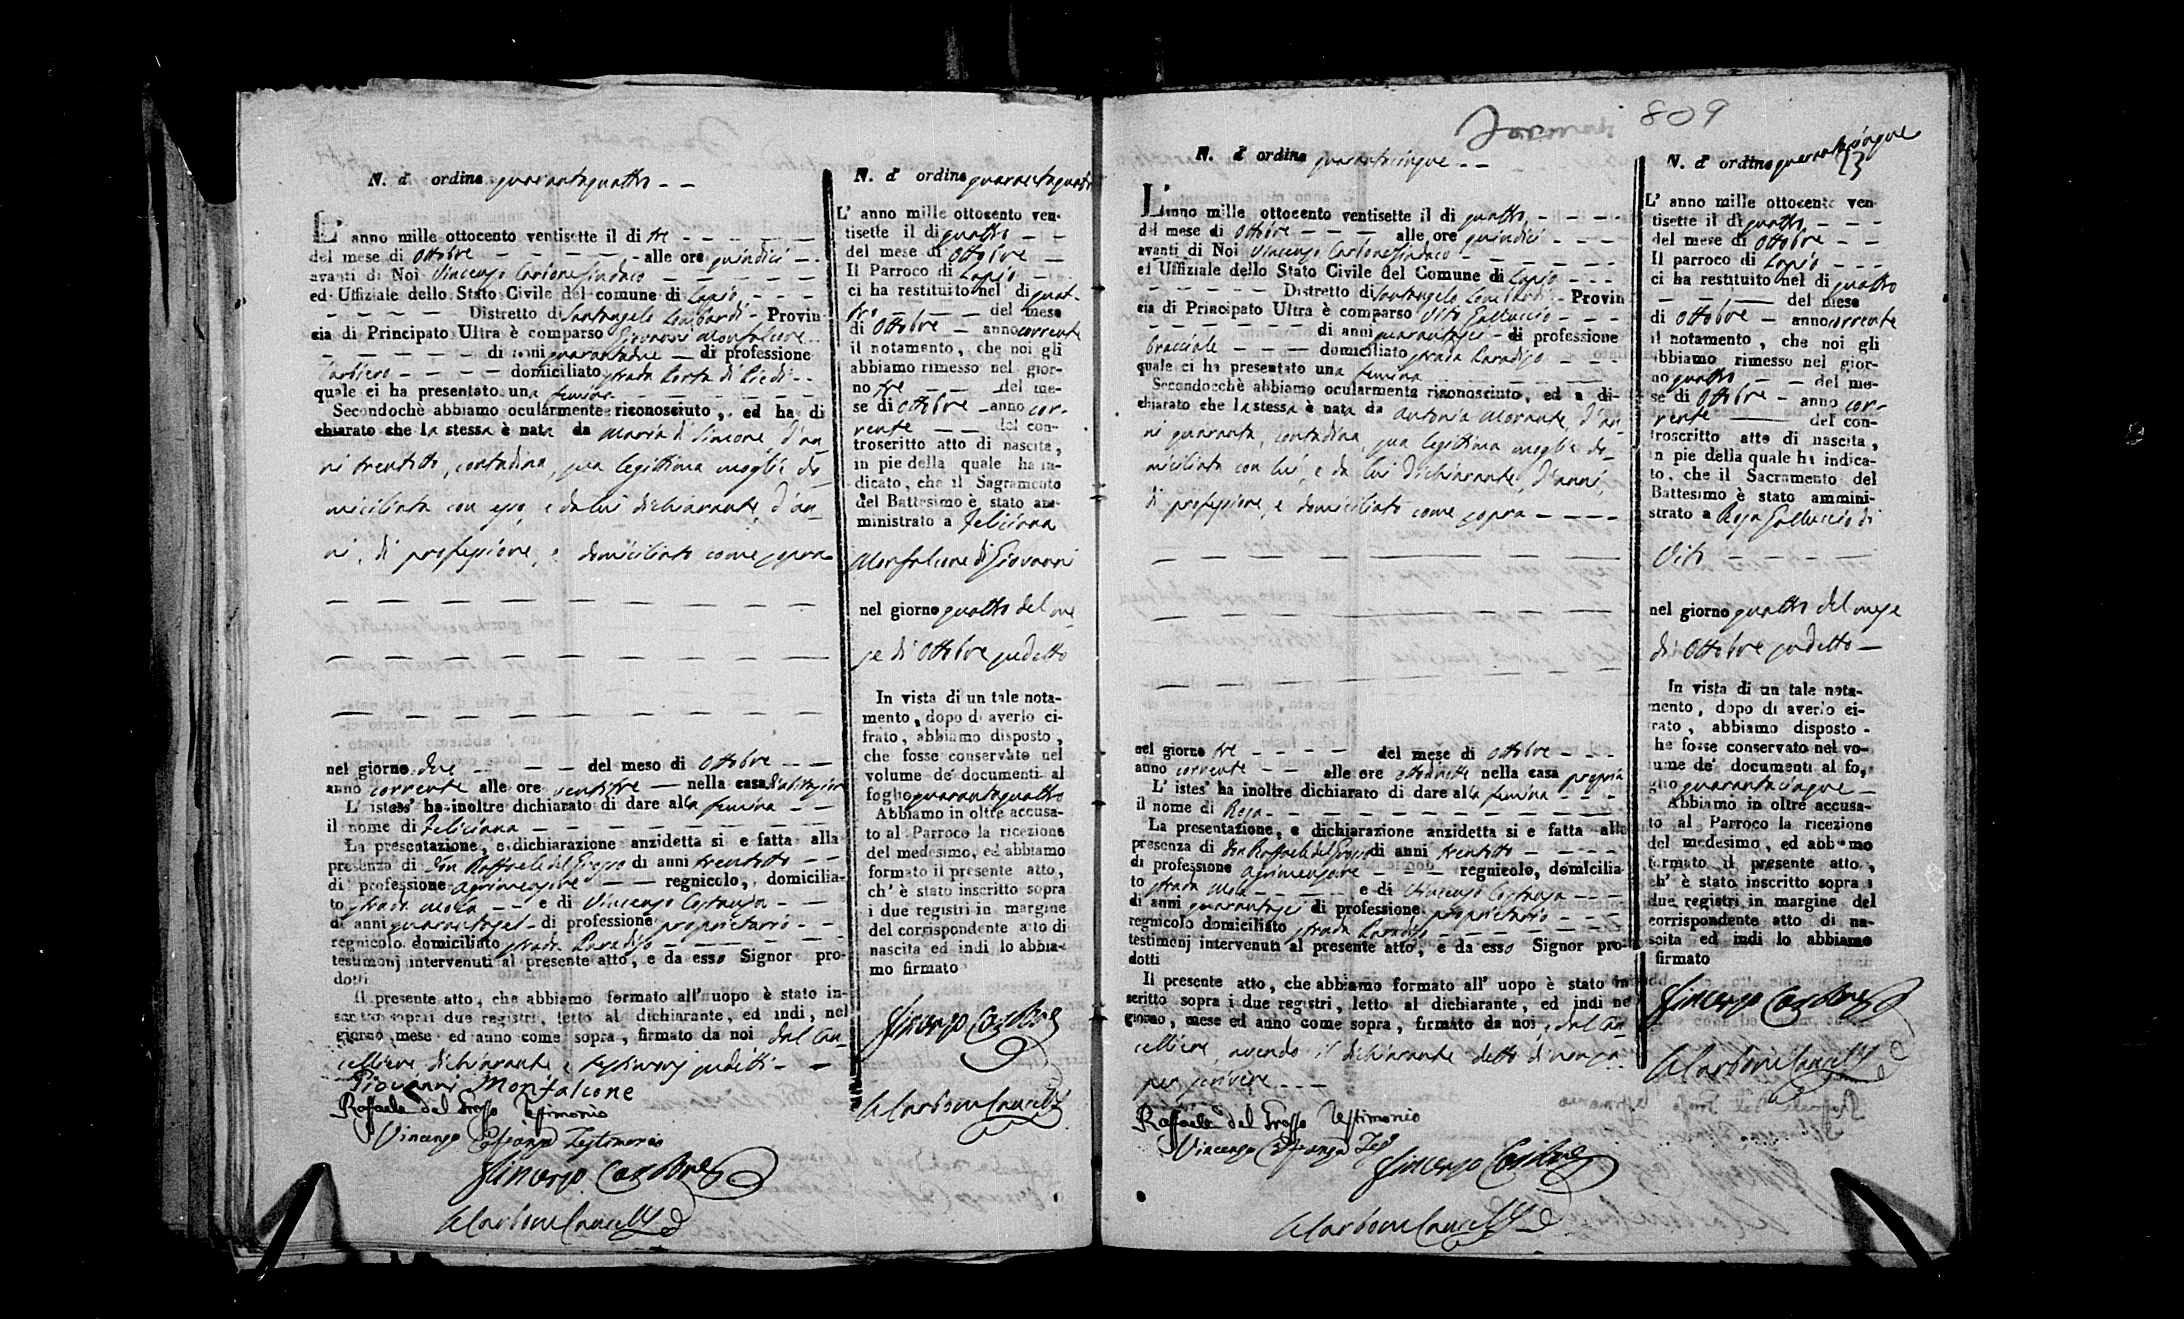 N. d' ordine quarantaquattro
L' anno mille ottocento ventisette il di tre
del mese di Ottobre alle ore quindici
avanti di Noi Vincenzo Carbone Sindaco
ed Uffiziale dello Stato Civile del comune di Lapio
Distretto di Santangelo Lombardi Provin
cia di Principato Ultra è comparso Giovanni Monfalcone
di anni quarantadue di professione
barbiero domiciliato strada Porta di Piedi
quale ci ha presentato una femina
Secondochè abbiamo ocularmente riconosciuto, ed ha di
chiarato che la stessa è nata da Maria di Simone, d'an
ni trentotto, contadina, sua legittima moglie do
miciliata con esso, e da lui dichiarante, d'an
ni, di professione, e domiciliato come sopra
nel giorno due del meso di Ottobre
anno corrente alle ore ventitre nella casa d'abitazione
L' istess' ha inoltre dichiarato di dare alla femina
il nome di Feliciana
La presentazione, e dichiarazione anzidetta si e fatta alla
presenza di don Raffaele del Grosso di anni trentotto
di professione agrimensore regnicolo, domicilia-
to strada Mola e di Vincenzo Costanza
di anni quarantasei di professione proprietario
regnicolo domiciliato strada Paradiso
testimonj intervenuti al presente atto, e da esso Signor pro-
dotti
Il presente atto, che abbiamo formato all' uopo è stato in-
scritto sopra i due registri, letto al dichiarante, ed indi, nel
giorno mese ed anno come sopra, firmato da noi dal Can
celliere dichiarante e testimonj sudetti
Giovanni Monfalcone
Raffaele del Grosso Testimonio
Vincenzo Costanza Testimonio
Vincenzo Carbone
Carbone Cancell
N. d' ordine quarantaquattro
L' anno mille ottocento ven-
tisette il di quattro
del mese di Ottobre
Il Parroco di Lapio
ci ha restituito nel di quat-
tro del mese
di Ottobre anno corrente
il notamento, che noi gli
abbiamo rimesso nel gior-
no tre del me-
se di Ottobre anno cor-
rente del con-
troscritto atto di nascita,
in pie della quale ha in-
dicato, che il Sagramento
del Battesimo è stato am-
ministrato a Feliciana
Monfalcone di Giovanni
nel giorno quattro del me
se di Ottobre sudetto
In vista di un tale nota-
mento, dopo d averlo ci-
frato, abbiamo disposto,
che fosse conservato nel
volume de' documenti al
foglio quarantaquattro
Abbiamo in oltre accusa-
to al Parroco la ricezione
del medesimo, ed abbiamo
formato il presente atto,
ch' è stato inscritto sopra
i due registri in margine
del corrispondente atto di
nascita ed indi lo abbia-
mo firmato
Vincenzo Carbone
Carbone Cancell
809
N. d' ordine quarantacinque
L' anno mille ottocento ventisette il di quattro
del mese di Ottobre alle ore quindici
avanti di Noi Vincenzo Carbone Sindaco
ei Uffiziale dello Stato Civile del Comune di Lapio
Distretto di Santangelo Lombardi Provin
cia di Principato Ultra è comparso Vito Galluccio
di anni quarantasei di professione
bracciale domiciliato strada Paradiso
quale ci ha presentato una femina
Secondocchè abbiamo ocularmente riconosciuto, ed a di-
chiarato che la stessa è nata da Antonia Morante, d'an-
ni quaranta, contadina, sua legittima moglie do-
miciliata con lui, e da lui dichiarante, d'anni,
di professione, e domiciliato come sopra
nel giorno tre del mese di Ottobre
anno corrente alle ore nella casa propria
L' istes' ha inoltre dichiarato di dare alla femina
il nome di Rosa
La presentazione, e dichiarazione anzidetta si e fatta alla
presenza di don Raffaele del Grosso di anni trentotto
di professione agrimensore regnicolo, domicilia-
to strada Mola e di Vincenzo Costanza
di anni quarantasei di professione proprietario
regnicolo domiciliato strada Paradiso
testimonj intervenuti al presente atto, e da esso Signor pro-
dotti
Il presente atto, che abbiamo formato all' uopo è stato in
scritto sopra i due registri, letto al dichiarante, ed indi nel
giorno, mese ed anno come sopra, firmato da noi, dal Can
celliere, avendo il dichiarante detto di non sa
per scrivere
Raffaele del Grosso Testimonio
Vincenzo Costanza Tes
Vincenzo Carbone
Carbone Cancell
N. d' ordine quarantacinque
23
L' anno mille ottocento ven
tisette il di quattro
del mese di Ottobre
Il parroco di Lapio
ci ha restituito nel di quattro
del mese
di Ottobre anno corrente
il notamento, che noi gli
abbiamo rimesso nel gior-
no quattro del me-
se di Ottobre anno cor-
rente del con-
troscritto atto di nascita,
in pie della quale ha indica-
to, che il Sacramento del
Battesimo è stato ammini-
strato a Rosa Galluccio di
Vito
nel giorno quattro del mese
di Ottobre sudetto
In vista di un tale nota-
mento, dopo di averlo ci-
frato, abbiamo disposto
he fosse conservato nel vo-
lume de' documenti al fo,
glio quarantacinque
Abbiamo in oltre accusa-
to al Parroco la ricezione
del medesimo, ed abb mo
formato il presente atto,
ch' è stato inscritto sopra i
due registri in margine del
corrispondente atto di na-
scita ed indi lo abbiamo
firmato
Vincenzo Carbone
Carbone Cancell